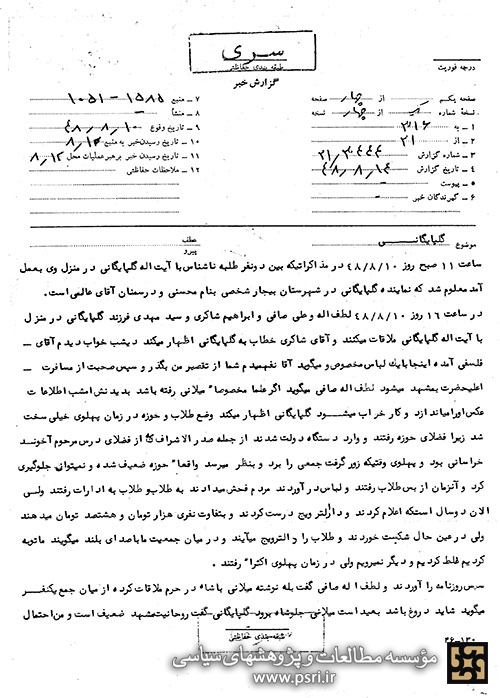 سری
طبقه بندی حفاظتی
درجه فوریت
گزارش خبر
صفحه یکم از چهار صفحه
نسخهٔ شماره یک از چهار نسخه
۱ ـ به ۳۱۶
۲ ـ از ۲۱
۳ ـ شماره گزارش ۲۱/۳۰۴۴۴
۴ ـ تاریخ گزارش ۴۸٫۸٫۱۴
۵ ـ پیوست
۶ ـ گیرندگان خبر
۷ ـ منبع ۱۵۸۵ – ۱۰۵۱
۸ ـ منشأ
۹ ـ تاریخ وقوع ۴۸٫۸٫۱۰
۱۰ ـ تاریخ رسیدن خبر به منبع
۱۱ ـ تاریخ رسیدن خبر برهبر عملیات محل ۸٫۱۲
۱۲ ـ ملاحظات حفاظتی
موضوع گلپایگانی
عطف
پیرو
ساعت ۱۱ صبح روز ۴۸/۸/۱۰ در مذاکراتیکه بین دونفر طلبه ناشناس با آیت اله گلپایگانی در منزل وی بعمل
آمد معلوم شد که نماینده گلپایگانی در شهرستان بیجار شخصی بنام محسنی و در سمنان آقای عالمی است.
در ساعت ۱۶ روز ۴۸/۸/۱۰ لطف اله وعلی صافی و ابراهیم شاکری و سید مهدی فرزند گلپایگانی در منزل
با آیت اله گلپایگانی ملاقات میکنند و آقای شاکری خطاب به گلپایگانی اظهار میکند دیشب خواب دیدم آقای ـ
فلسفی آمده اینجا بایك لباس مخصوص و میگوید آقا نفهمیدم شما از تقصیر من بگذر و سپس صحبت از مسافرت ـ
اعلیحضرت بمشهد میشود لطف اله صافی میگوید اگر علما مخصوصا" میلانی رفته باشد بدیدنش امشب اطلاعات
عکس اورا میاندازد و کار خراب میشود گلپایگانی اظهار میکند وضع طلاب و حوزه در زمان پهلوی خیلی سخت
شد زیرا فضلای حوزه رفتند و وارد دستگاه دولت شدند از جمله صدرالاشراف که از فضلای درس مرحوم آخوند
خراسانی بود و پهلوی وقتیکه زور گرفت جمعی را برد و بنظر میرسد واقعا" حوزه ضعیف شده و نمیتوان جلوگیری
کرد و آنزمان از بس طلاب رفتند و لباس در آوردند مردم فحش میدادند به طلاب و طلاب به ادارات رفتند ولی
الان دو سال استکه اعلام کردند و دارالترویج درست کردند و بتفاوت نفری هزار تومان و هشتصد تومان میدهند
ولی در عین حال شکست خوردند و طلاب را والترویج میآیند و در میان جمعیت ما باصدای بلند میگویند ماتوبه
کردیم غلط کردیم و دیگر نمیرویم ولی در زمان پهلوی اکثرا" رفتند .
سرس روزنامه را آوردند و لطف اله صافی گفت بله نوشته میلانی باشاه در حرم ملاقات کرده از میان جمع یکنفر
میگوید شاید دروغ باشد بعید است میلانی جلو شاه برود گلپایگانی گفت روحانیت مشهد ضعیف است و من احتمال
طبقه بندی حفاظتی
۴۶-۱۳۰
مؤسسه مطالعات و پژوهشهای سیاسی
www.psri.ir